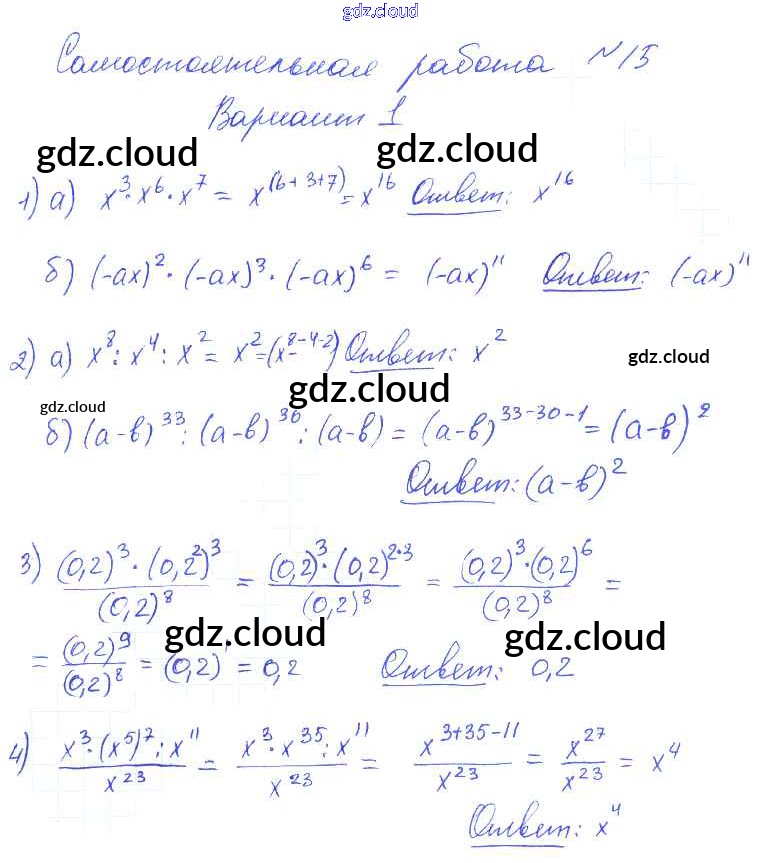 gdz.cloud
Самостоятельная работа №15
Вариант 1
gdz.cloud gdz.cloud
1) а) x³·x⁶·x⁷ = x^(6+3+7) = x¹⁶ Ответ: x¹⁶
б) (-ax)²·(-ax)³·(-ax)⁶ = (-ax)¹¹ Ответ: (-ax)¹¹
2) а) x⁸:x⁴:x² = x² = (x^8-4-2) Ответ: x²
gdz.cloud
gdz.cloud
gdz.cloud
б) (a-b)³³:(a-b)³⁰:(a-b) = (a-b)^33-30-1 = (a-b)²
Ответ: (a-b)²
3) (0,2)³·(0,2²)³/(0,2)⁸ = (0,2)³·(0,2)^2·3/(0,2)⁸ = (0,2)³·(0,2)⁶/(0,2)⁸ =
gdz.cloud gdz.cloud
= (0,2)⁹/(0,2)⁸ = (0,2)¹ = 0,2 Ответ: 0,2
4) x³·(x⁵)⁷:x¹¹/x²³ = x³·x³⁵:x¹¹/x²³ = x^3+35-11/x²³ = x²⁷/x²³ = x⁴
Ответ: x⁴